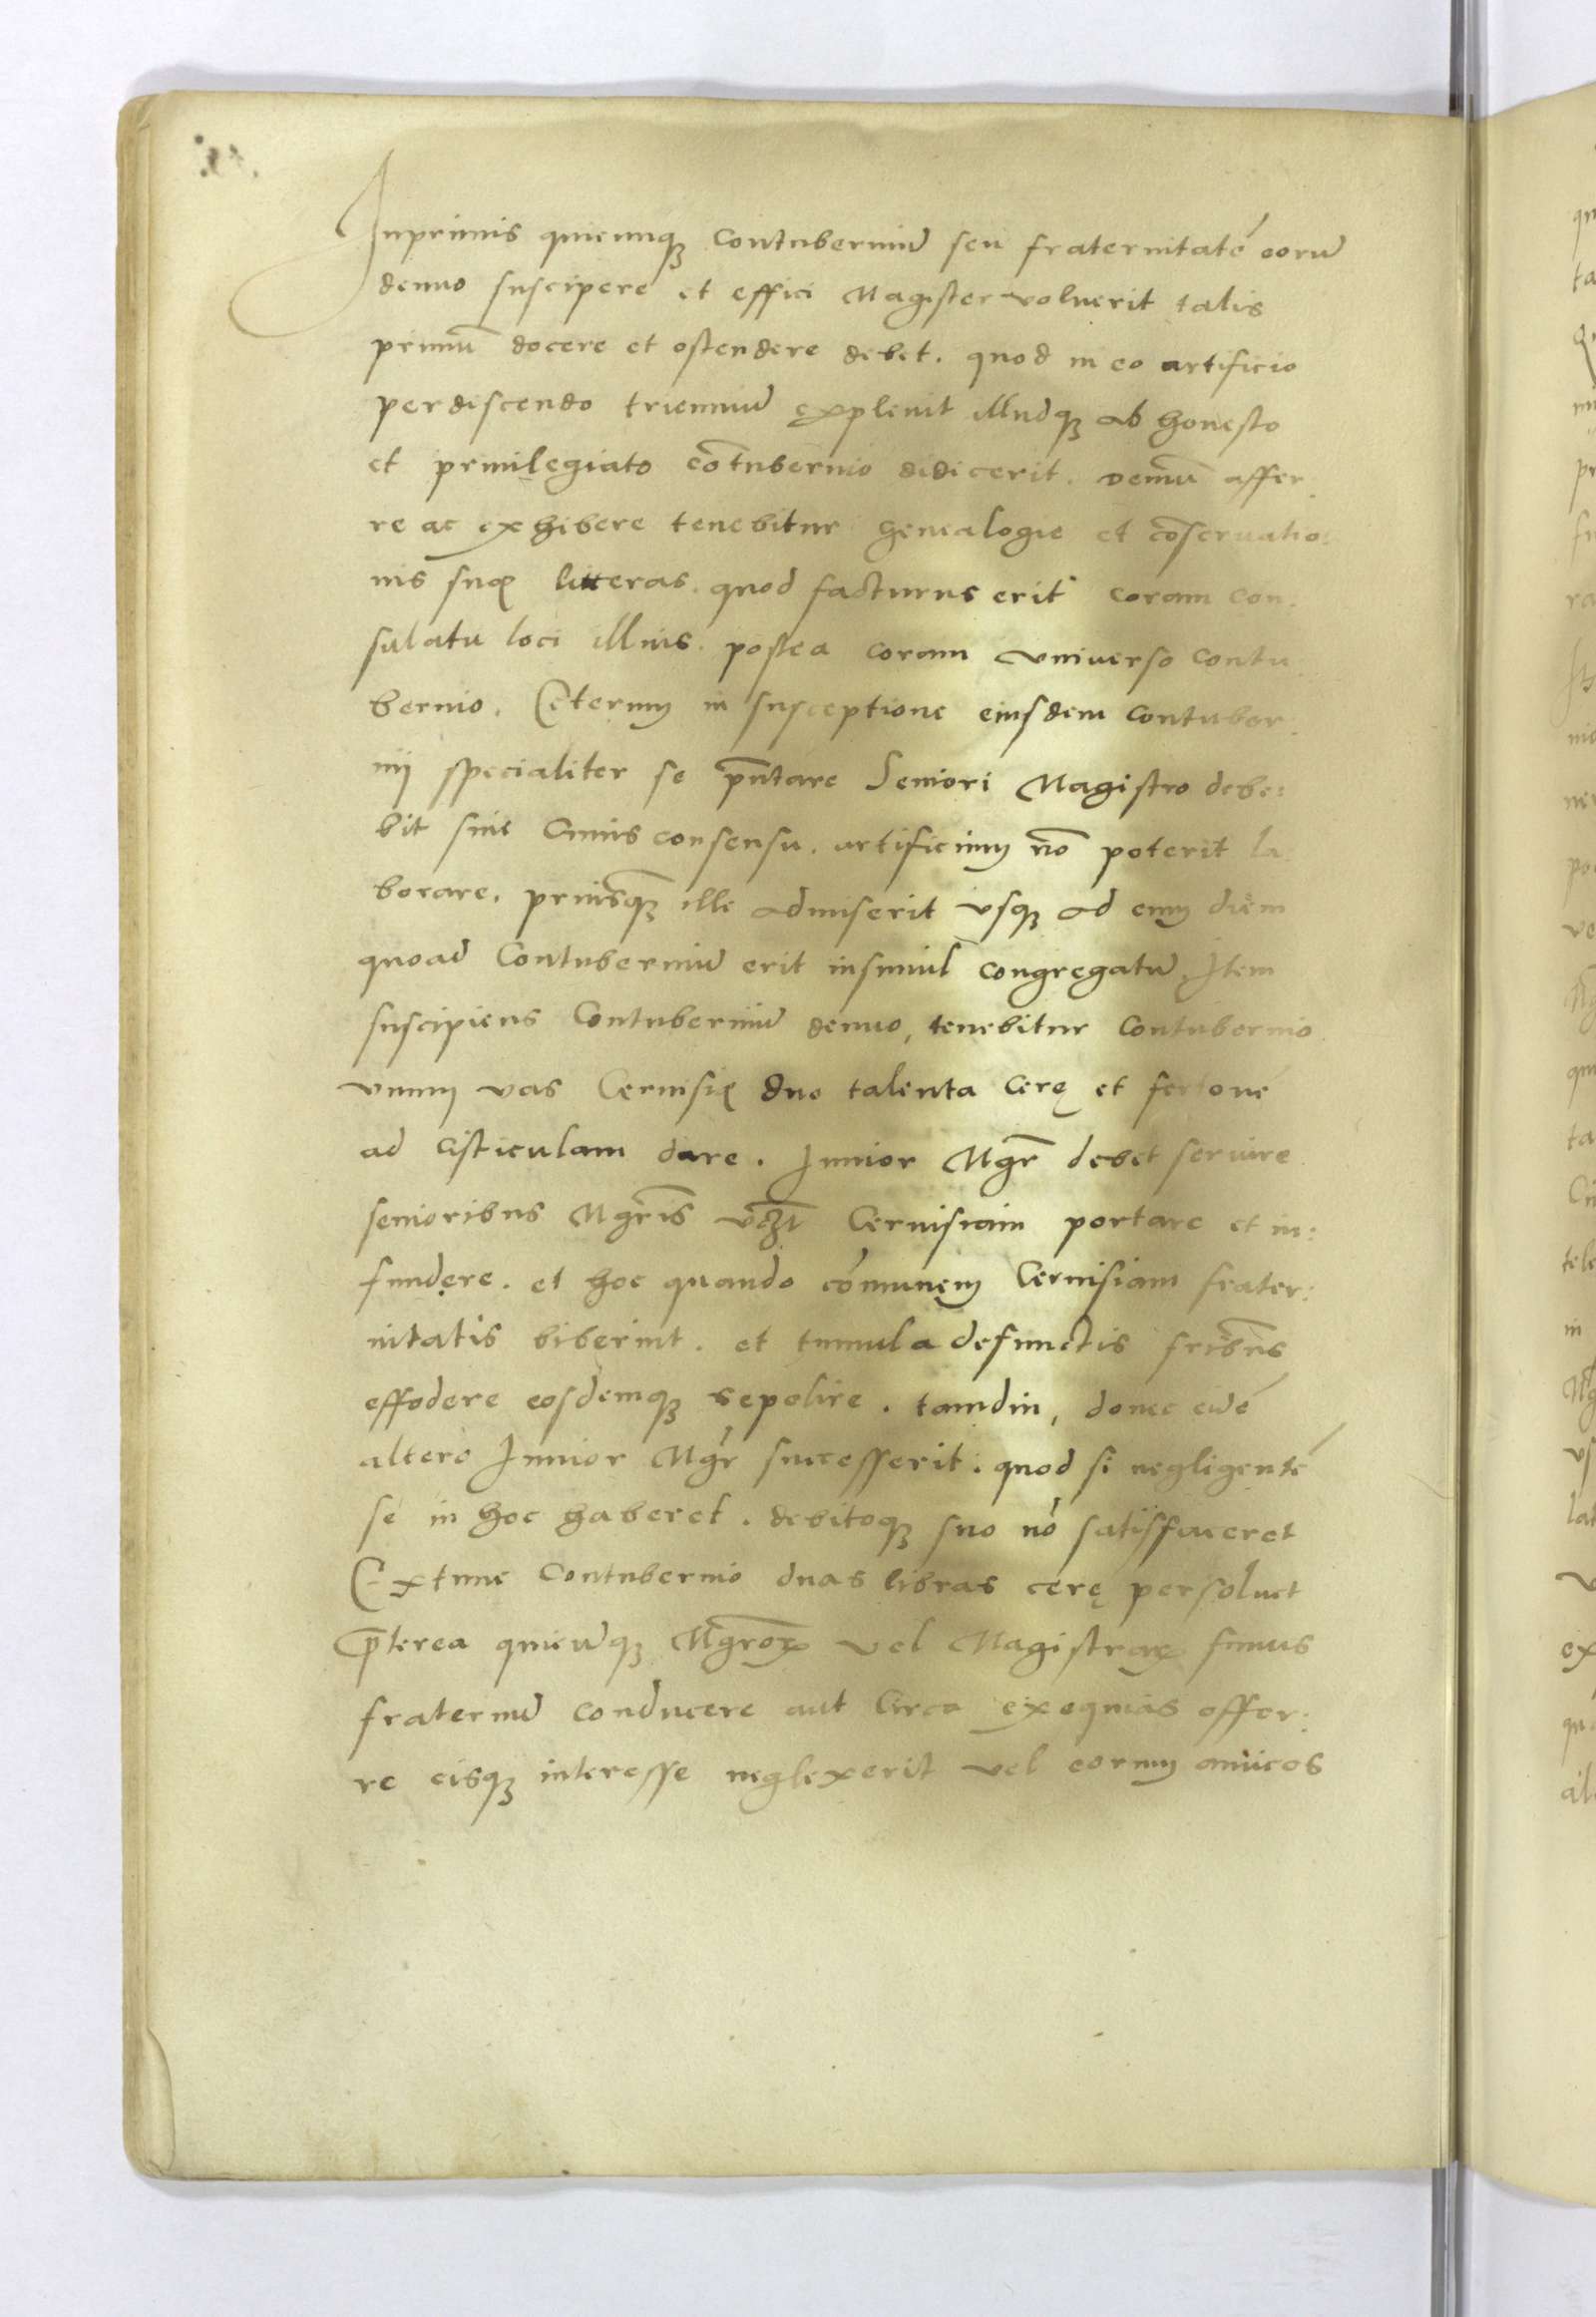 Inprimis quicunqȝ contuberniū seu fraternitatē eorū
denuo suscipere et effici Magister voluerit talis
primū docere et ostendere debet. quod in eo artificio
perdiscendo trienniū explevit illudqȝ ab honesto
et privilegiato cōtubernio didicerit. demū affer
re ac exhibere tenebitur genealogie et cōservatio:
nis suę litteras. quod facturus erit coram con:
sulatu loci illius. postea coram universo contu
bernio. Ceterum in susceptione eiusdem contuber:
nij specialiter se p̄ntare Seniori Magistro debe:
bit sine cuius consensu. artificium nō poterit la
borare. priusqȝ ille admiserit usqȝ ad eum diem
quoad Contuberniū erit insimul congregatū. Item
suscipiens Contuberniū denuo, tenebitur Contubernio
unum vas Cervisię duo talenta cerę et fertonē
ad cisticulam dare. Junior Mgr̄ debet servire
senioribus Mgr̄is vcȝt Cervisiam portare et in:
fundere. et hoc quando cōmunem Cervisiam frater:
nitatis biberint. et tumula defunctis fr̄ibus
effodere eosdemqȝ sepolire. tamdiu, donec eidē
altero Junior Mgr̄ successerit. quod si negligentē
se in hoc haberet. debitoqȝ suo nō satisfaceret
Extunc Contubernio duas libras cerę persoluet
P̄terea quicūqȝ Mgr̄oꝝ vel Magistraꝝ funus
fraternū conducere aut circa exequias offer:
re eisqȝ interesse neglexerit vel eorum amicos